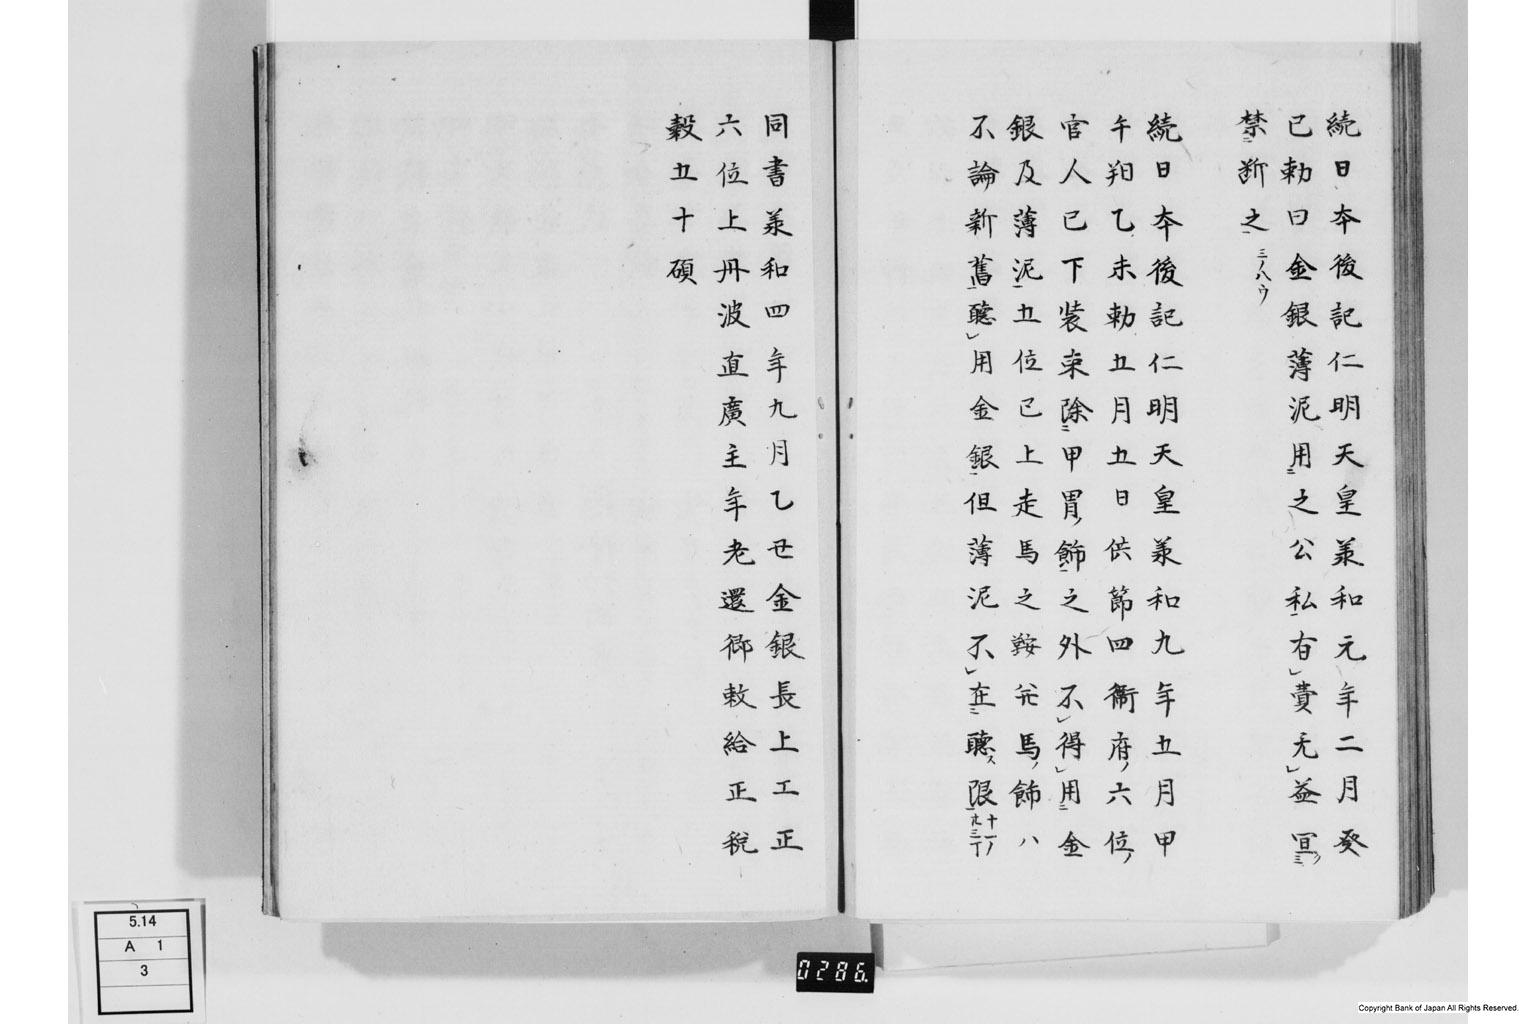 続日本後記仁明天皇承和元年二月癸
巳勅曰金銀薄泥用之公私有費无益宣
禁断之三ノ八ウ
続日本後記仁明天皇承和九年五月甲
午朔乙未勅五月五日供節四衞府六位
官人已下装束除甲冑飾之外不得用金
銀及薄泥五位已上走馬之鞍并馬飾ハ
不論新舊聴用金銀但薄泥不在聴限十一ノ九三丁
同書承和四年九月乙丑金銀長上工正
六位上丹波直廣主年老還郷敕給正税
穀五十碩
5.14
A 1
3
0286
Copyright Bank of Japan All Rights Reserved.